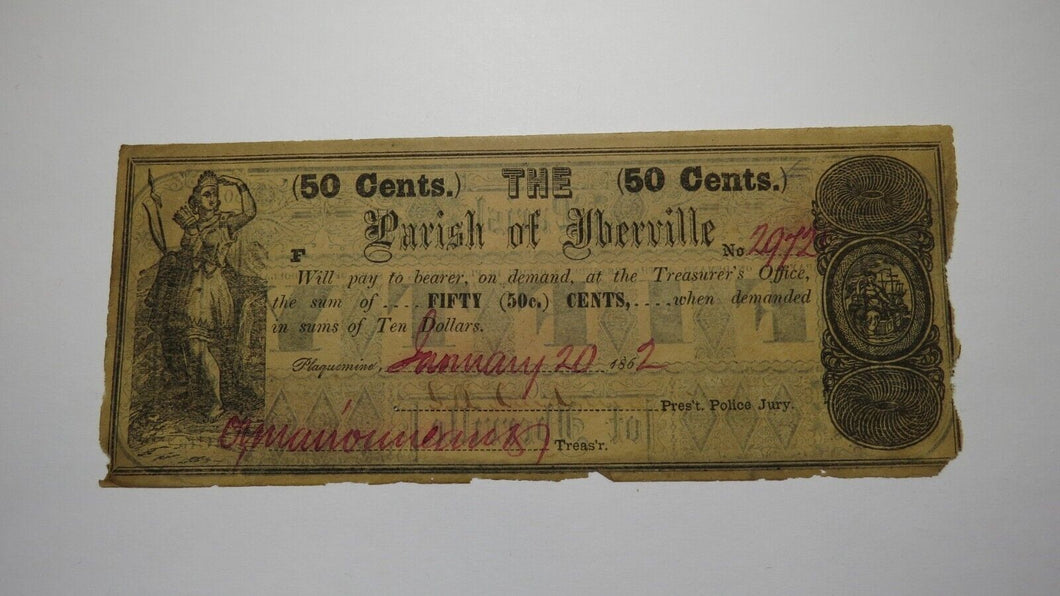 (50 Cents.) THE (50 Cents.)
Parish of Iberville
F No 2972
Will pay to bearer, on demand, at the Treasurer's Office,
the sum of .... FIFTY (50c.) CENTS, .... when demanded
in sums of Ten Dollars.
Plaquemine, January 20 1862
Pres't. Police Jury.
Treas'r.